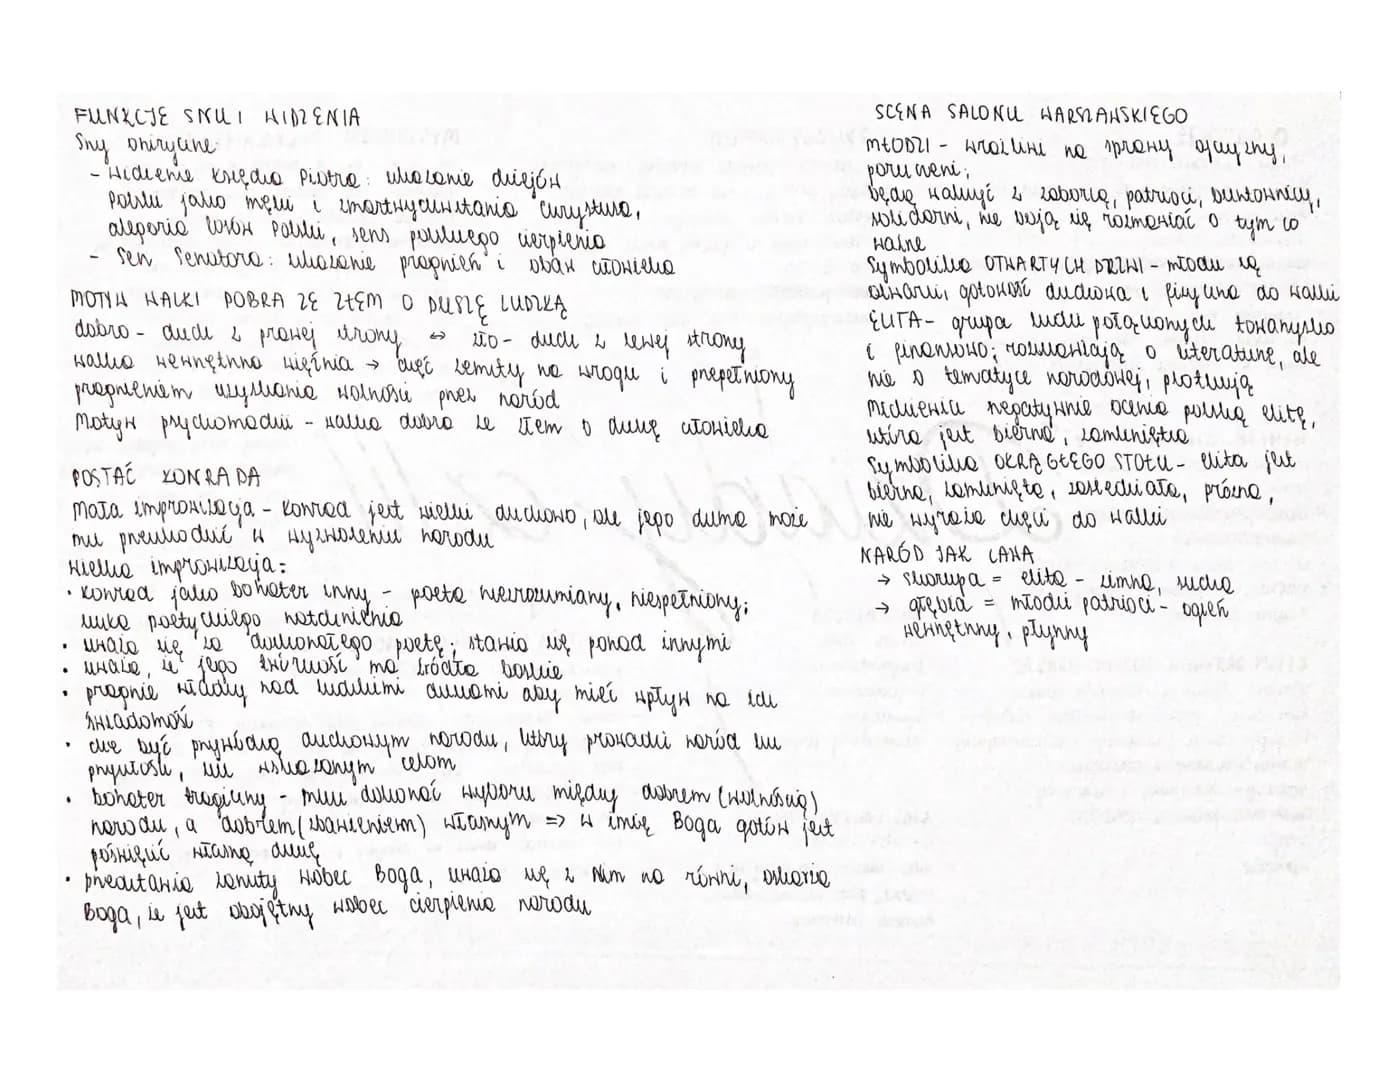 FUNKCJE SNU I WIDZENIA
Sny oniryczne
- Widzenie księdza Piotra: ukazanie dziejów
Polski jako męki i zmartwychwstania Chrystusa,
alegoria losów Polski, sens polskiego cierpienia
- Sen Senatora: ukazanie pragnień i obaw człowieka
MOTYW WALKI DOBRA ZE ZŁEM O DUSZĘ LUDZKĄ
dobro - duch z prawej strony ↔ zło - duch z lewej strony
walka wewnętrzna więźnia → chęć zemsty na wrogu i przepełniony
pragnieniem uzyskania wolności przez naród
Motyw psychomachii - walka dobra ze złem o duszę człowieka
POSTAĆ KONRADA
Mała improwizacja - Konrad jest wielki duchowo, ale jego duma może
mu przeszkodzić w wyzwoleniu narodu
Wielka improwizacja:
• Konrad jako bohater inny - poeta niezrozumiany, niespełniony;
szuka poetyckiego natchnienia
• uważa się za doskonałego poetę; stawia się ponad innymi
• uważa, że jego twórczość ma źródła boskie
• pragnie władzy nad ludzkimi duszami aby mieć wpływ na ich
świadomość
• chce być przywódcą duchowym narodu, który prowadzi naród ku
przyszłości, ku wskazanym celom
• bohater tragiczny - musi dokonać wyboru między dobrem (wolnością)
narodu, a dobrem (zbawieniem) własnym => w imię Boga gotów jest
poświęcić własną duszę
• przedstawia zarzuty wobec Boga, uważa się z Nim na równi, oskarża
Boga, że jest obojętny wobec cierpienia narodu
SCENA SALONU WARSZAWSKIEGO
MŁODZI - wrażliwi na sprawy ojczyzny,
poruszeni;
będą walczyć z zaborcą, patrioci, buntownicy,
solidarni, nie boją się rozmawiać o tym co
ważne
Symbolika OTWARTYCH DRZWI - młodzi są
otwarci, gotowość duchowa i fizyczna do walki
ELITA - grupa ludzi połączonych towarzysko
i finansowo; rozmawiają o literaturze, ale
nie o tematyce narodowej, plotkują
Mickiewicz negatywnie ocenia polską elitę,
która jest bierna, zamknięta
Symbolika OKRĄGŁEGO STOŁU - elita jest
bierna, zamknięta, zasiedziała, próżna,
nie wyraża chęci do walki
NARÓD JAK LAWA
→ skorupa = elita - zimna, sucha
→ głębia = młodzi patrioci - ogień
wewnętrzny, płynny